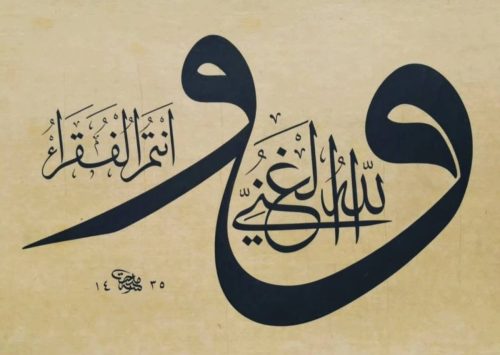 وَاللّٰهُ الْغَنِيُّ وَانْتُمُ الْفُقَرَاءُ
١٤٣٥